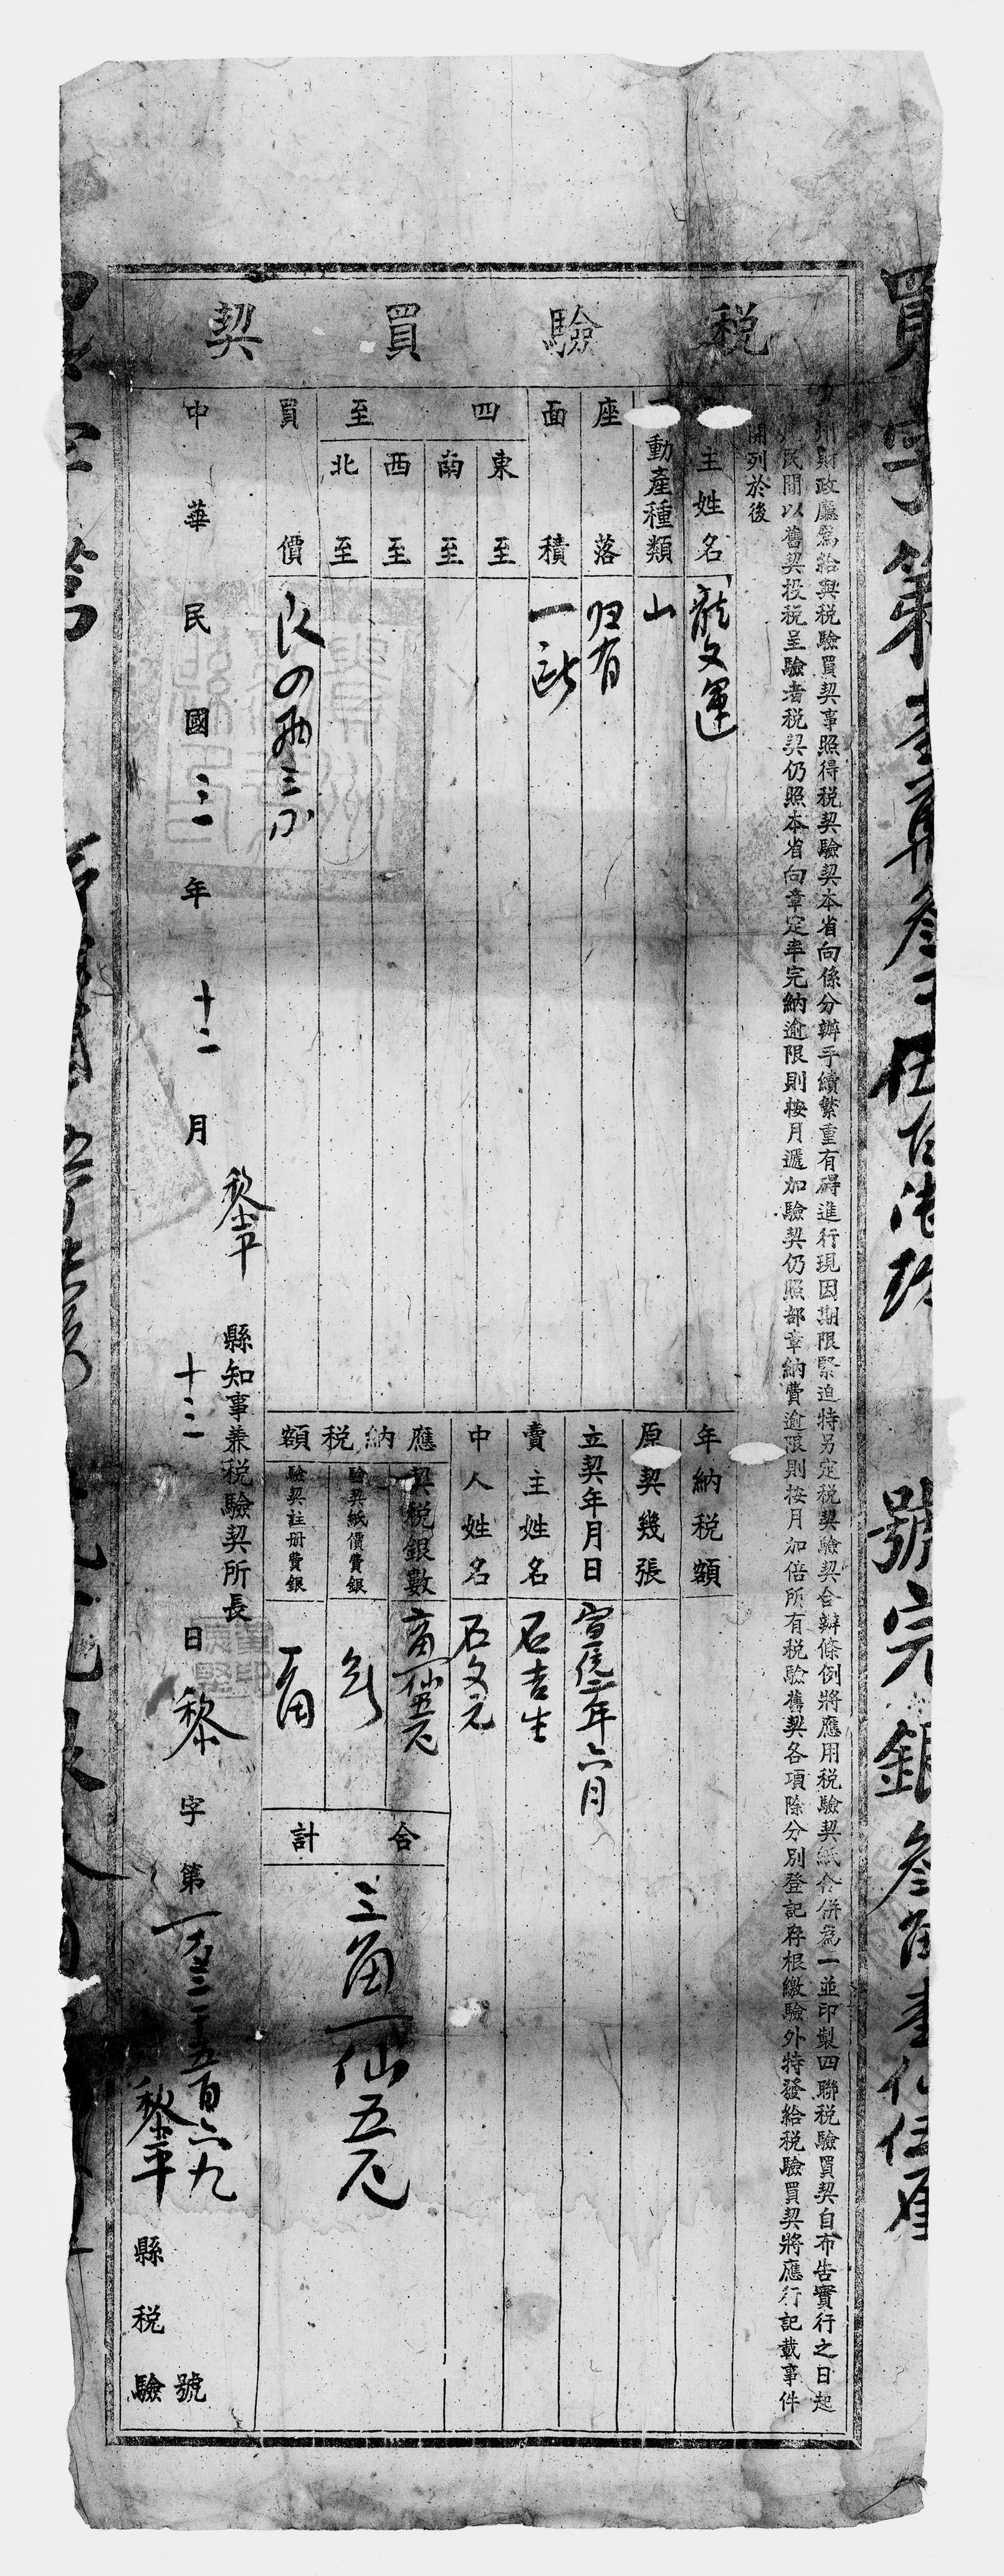 買字第壹萬叁千伍百陆玖號完銀叁角壹仙伍厘
税驗買契
州財政廳爲給與税驗買契事照得税契驗契本省向係分辦手續繁重有碍進行現因期限緊迫特另定税契驗契合辦條例將應用税驗契紙合併爲一並印製四聯税驗買契自布告實行之日起
民間以舊契投税呈驗者税契仍照本省向章定率完納逾限則按月遞加驗契仍照部章納費逾限則按月加倍所有税驗舊契各項除分別登記存根繳驗外特發給税驗買契將應行記載事件
開列於後
主姓名 龍文運
動產種類 山
座落 归有
面積 一
四至
東至
南至
西至
北至
買價 四两三
年納税額
原契幾張
立契年月日 宣統二年六月
賣主姓名 石吉生
中人姓名 石文元
應納税額
契税銀數 一仙五
驗契紙價費銀
驗契註册費銀
合計 三角一仙五
中華民國三年十二月十二日
黎平縣知事兼税驗契所長
黎字第一万三千五百六九號
黎平縣税驗